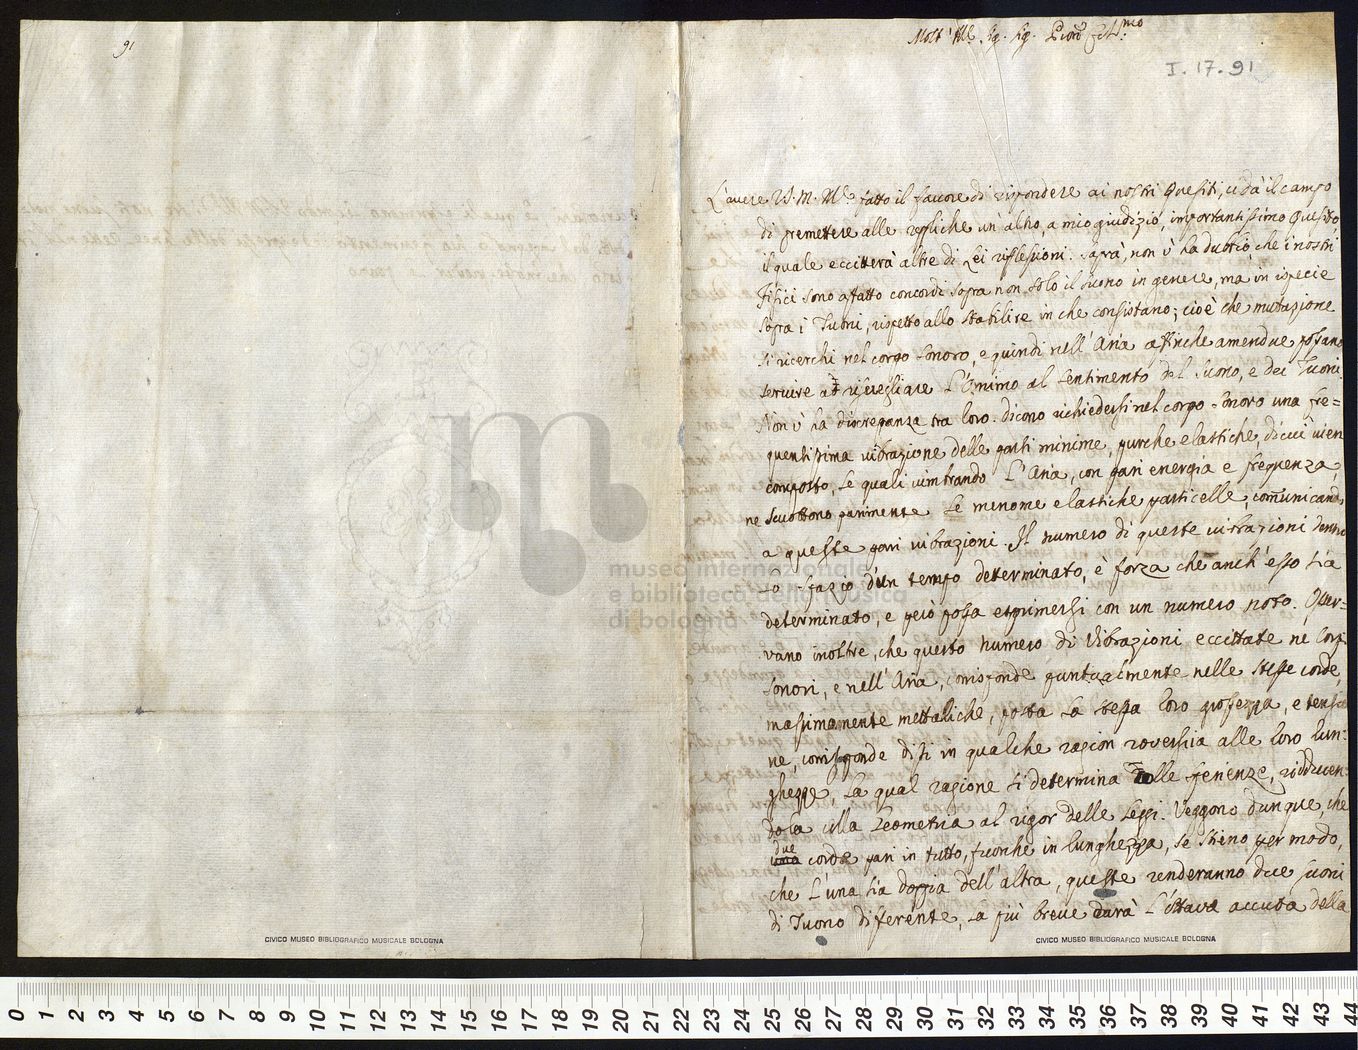 91
Molt' Ill.e Sig. Sig. Pron
I. 17. 91
L'avere V.S. M. Ill.e fatto il favore di rispondere ai nostri Quesiti, ci dà il campo
di premettere alle repliche un'altro, a mio giudizio, importantissimo Quesito
il quale ecciterà altre di Lei riflessioni. Saprà, non v'ha dubbio che i nostri
Fisici sono affatto concordi sopra non solo il suono in genere, mà in ispecie
sopra i Tuoni, rispetto allo stabilire in che consistano; cioè che mutazione
si ricerchi nel corpo sonoro, e quindi nell'Aria affinche amendue possano
servire ad risvegliare l'Animo al sentimento del suono, e dei Tuoni.
Non v'ha discrepanza tra loro. dicono richiedersi nel corpo sonoro una fre=
quentissima vibrazione delle parti minime, purche elastiche, di cui vien
composto, le quali vibrando l'Aria, con pari energia e frequenza,
ne scuottono parimente le menome elastiche particelle, comunicando
a queste pari vibrazioni. Il numero di queste vibrazioni dentro
lo spazio d'un tempo determinato, è forza che anch'esso sia
determinato, e però possa esprimersi con un numero noto. Osser=
vano inoltre, che questo numero di vibrazioni eccittate ne Corpi
sonori, e nell'Aria, corrisponde puntualmente nelle stesse corde,
massimamente mettaliche, posta la stessa loro grossezza, e tensio
ne, corrisponde dissi in qualche ragion roverscia alle loro lun=
ghezze la qual ragione si determina dalle sperienze, riducen=
dola colla Geometria al rigor delle Leggi. Veggono dunque, che
due
corde pari in tutto, fuorche in lunghezza, se sheno per modo,
che l'una sia doppia dell'altra, queste renderanno due suoni
di Tuono diferente, la più breve darà l'ottava accuta della
museo internazionale
e biblioteca della musica
di bologna
CIVICO MUSEO BIBLIOGRAFICO MUSICALE BOLOGNA
CIVICO MUSEO BIBLIOGRAFICO MUSICALE BOLOGNA
0 1 2 3 4 5 6 7 8 9 10 11 12 13 14 15 16 17 18 19 20 21 22 23 24 25 26 27 28 29 30 31 32 33 34 35 36 37 38 39 40 41 42 43 44